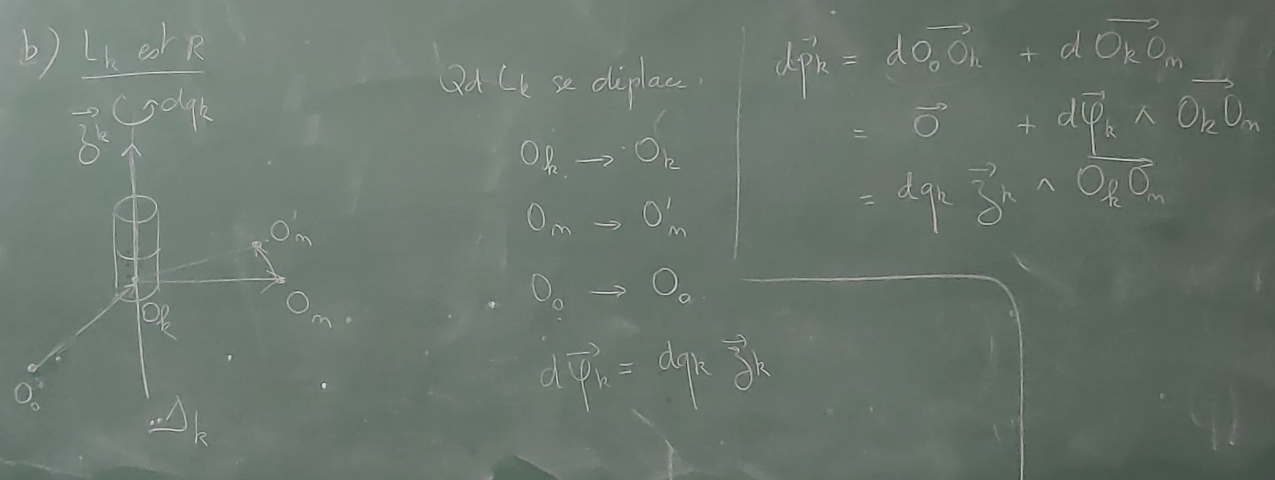 b) L_k est R
dq_k
\vec{z}_k
O'_n
O_n
O_k
O_0
Δ_k
Qd L_k se déplace,
O_k → O_k
O_n → O'_n
O_0 → O_0
d\vec{φ}_k = dq_k \vec{z}_k
d\vec{p}_k = d\vec{O_0O_k} + d\vec{O_kO_n}
= \vec{0} + d\vec{φ}_k ∧ \vec{O_kO_n}
= dq_k \vec{z}_k ∧ \vec{O_kO_n}